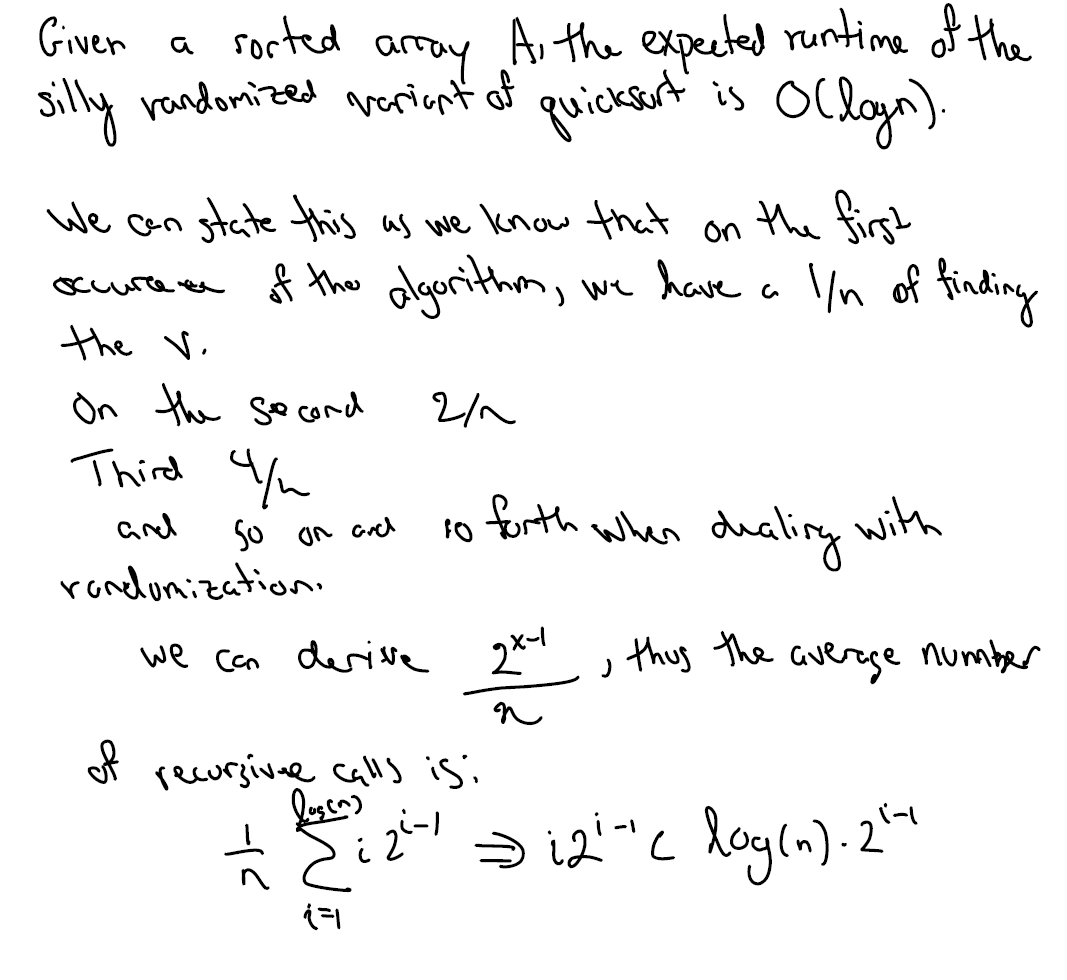 Given a sorted array A, the expected runtime of the
silly randomized variant of quicksort is O(logn).
We can state this as we know that on the first
of the algorithm, we have a 1/n of finding
the v.
On the second 2/n
Third 4/n
and so on and so forth when dealing with
randomization.
we can derive 2^{x-1}/n, thus the average number
of recursive calls is:
1/n ∑_{i=1}^{log(n)} i 2^{i-1} ⇒ i2^{i-1} < log(n)·2^{i-1}